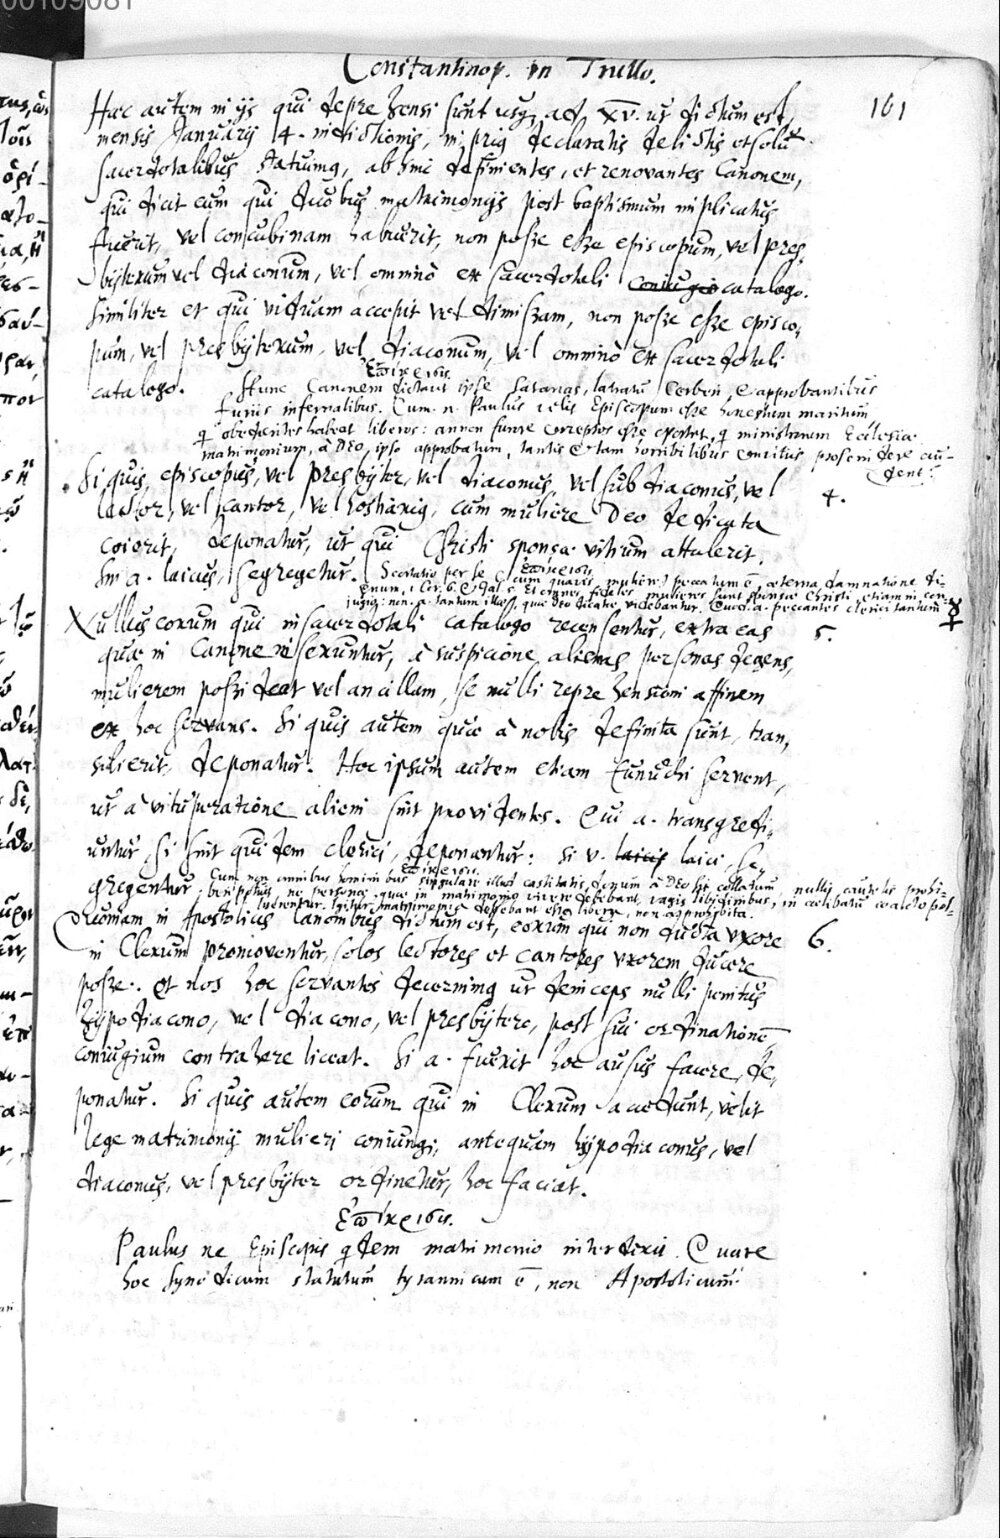 00109081
Constantinop. in Trullo.
161
Haec autem in ijs qui deprehensi sunt usq ad xv. ut dictum est,
mensis Januarij 4. indictionis, in prig declaratis delictis et solu
sacerdotalibus statuimq, ab hinc definientes, et renovantes Canonem,
qui dicit eum qui duobus matrimonijs post baptismum implicatus
fuerit, vel concubinam habuerit, non posse esse episcopum, vel pres,
byterum vel diaconum, vel omnino ex sacerdotali catalogo.
Similiter et qui viduam accepit vel dimissam, non posse esse episco,
pum, vel presbyterum, vel diaconum, vel omninò ex sacerdotali
catalogo.
Ἐπίκρισις.
Hunc Canonem dictavit ipse Satanas, latratu Cerberi, & approbantibus
furijs infernalibus. Cum. n. Paulus velit Episcopum esse honestum maritum
q obedientes habeat liberos: annon furore correptos esse oportet, q ministrorum Ecclesiae
matrimonium, à DEO ipso approbatum, tantis & tam horribilibus convitijs proscindere au-
dent?
Si quis episcopus, vel presbyter, vel diaconus, vel subdiaconus, vel
4.
lector, vel cantor, vel hostiarig, cum muliere Deo dedicata
coierit, deponatur, ut qui Christi sponsae vitium attulerit.
Sin a. laicus, segregetur.
Ἐπίκρισις.
Scortatio per se cum quavis muliere peccatum ē, aeterna damnatione di-
gnum, 1 Cor. 6. & Gal. 5. Et omnes fideles mulieres sunt sponsae Christi, etiam in con-
jugio: non. a. tantum illae, quae Deo dicatae videbantur. Quare. a. peccantes clerici tantum
Nullus eorum qui in sacerdotali catalogo recensentur, extra eas
5.
quae in Canone inseruntur, à suspicione alienas personas degens,
mulierem possideat vel ancillam, se nulli reprehensioni affinem
ex hoc servans. Si quis autem quae à nobis definita sunt, tran,
silierit, deponatur. Hoc ipsum autem etiam Eunuchi servent,
ut à vituperatione alieni sint providentes. Qui a. transgredi,
untur, si sint quidem clerici, deponantur: si v. laici laici, se,
gregentur
Ἐπίκρισις.
Cum non omnibus hominibus singulare illud castitatis donum à DEO sit collatum, nulli, cautelae prohi-
luerentur. Igitur matrimonia debebant esse libera, non autem prohibita.
Quoniam in Apostolicis Canonibus dictum est, eorum qui non ducta uxore
6.
in Clerum promoventur, solos lectores et cantores uxorem ducere
posse: et nos hoc servantes decernimq ut deinceps nulli penitus
hypodiacono, vel diacono, vel presbytero, post sui ordinationē,
coniugium contrahere liceat. Si a. fuerit hoc ausus facere, de,
ponatur. Si quis autem eorum qui in Clerum accedunt, velit
lege matrimonij mulieri coniungi, antequam hypodiaconus, vel
diaconus, vel presbyter ordinetur, hoc faciat.
Ἐπίκρισις.
Paulus ne Episcopis qdem matrimonio interdixit. Quare
hoc synodicum statutum tyrannicum ē, non Apostolicum.